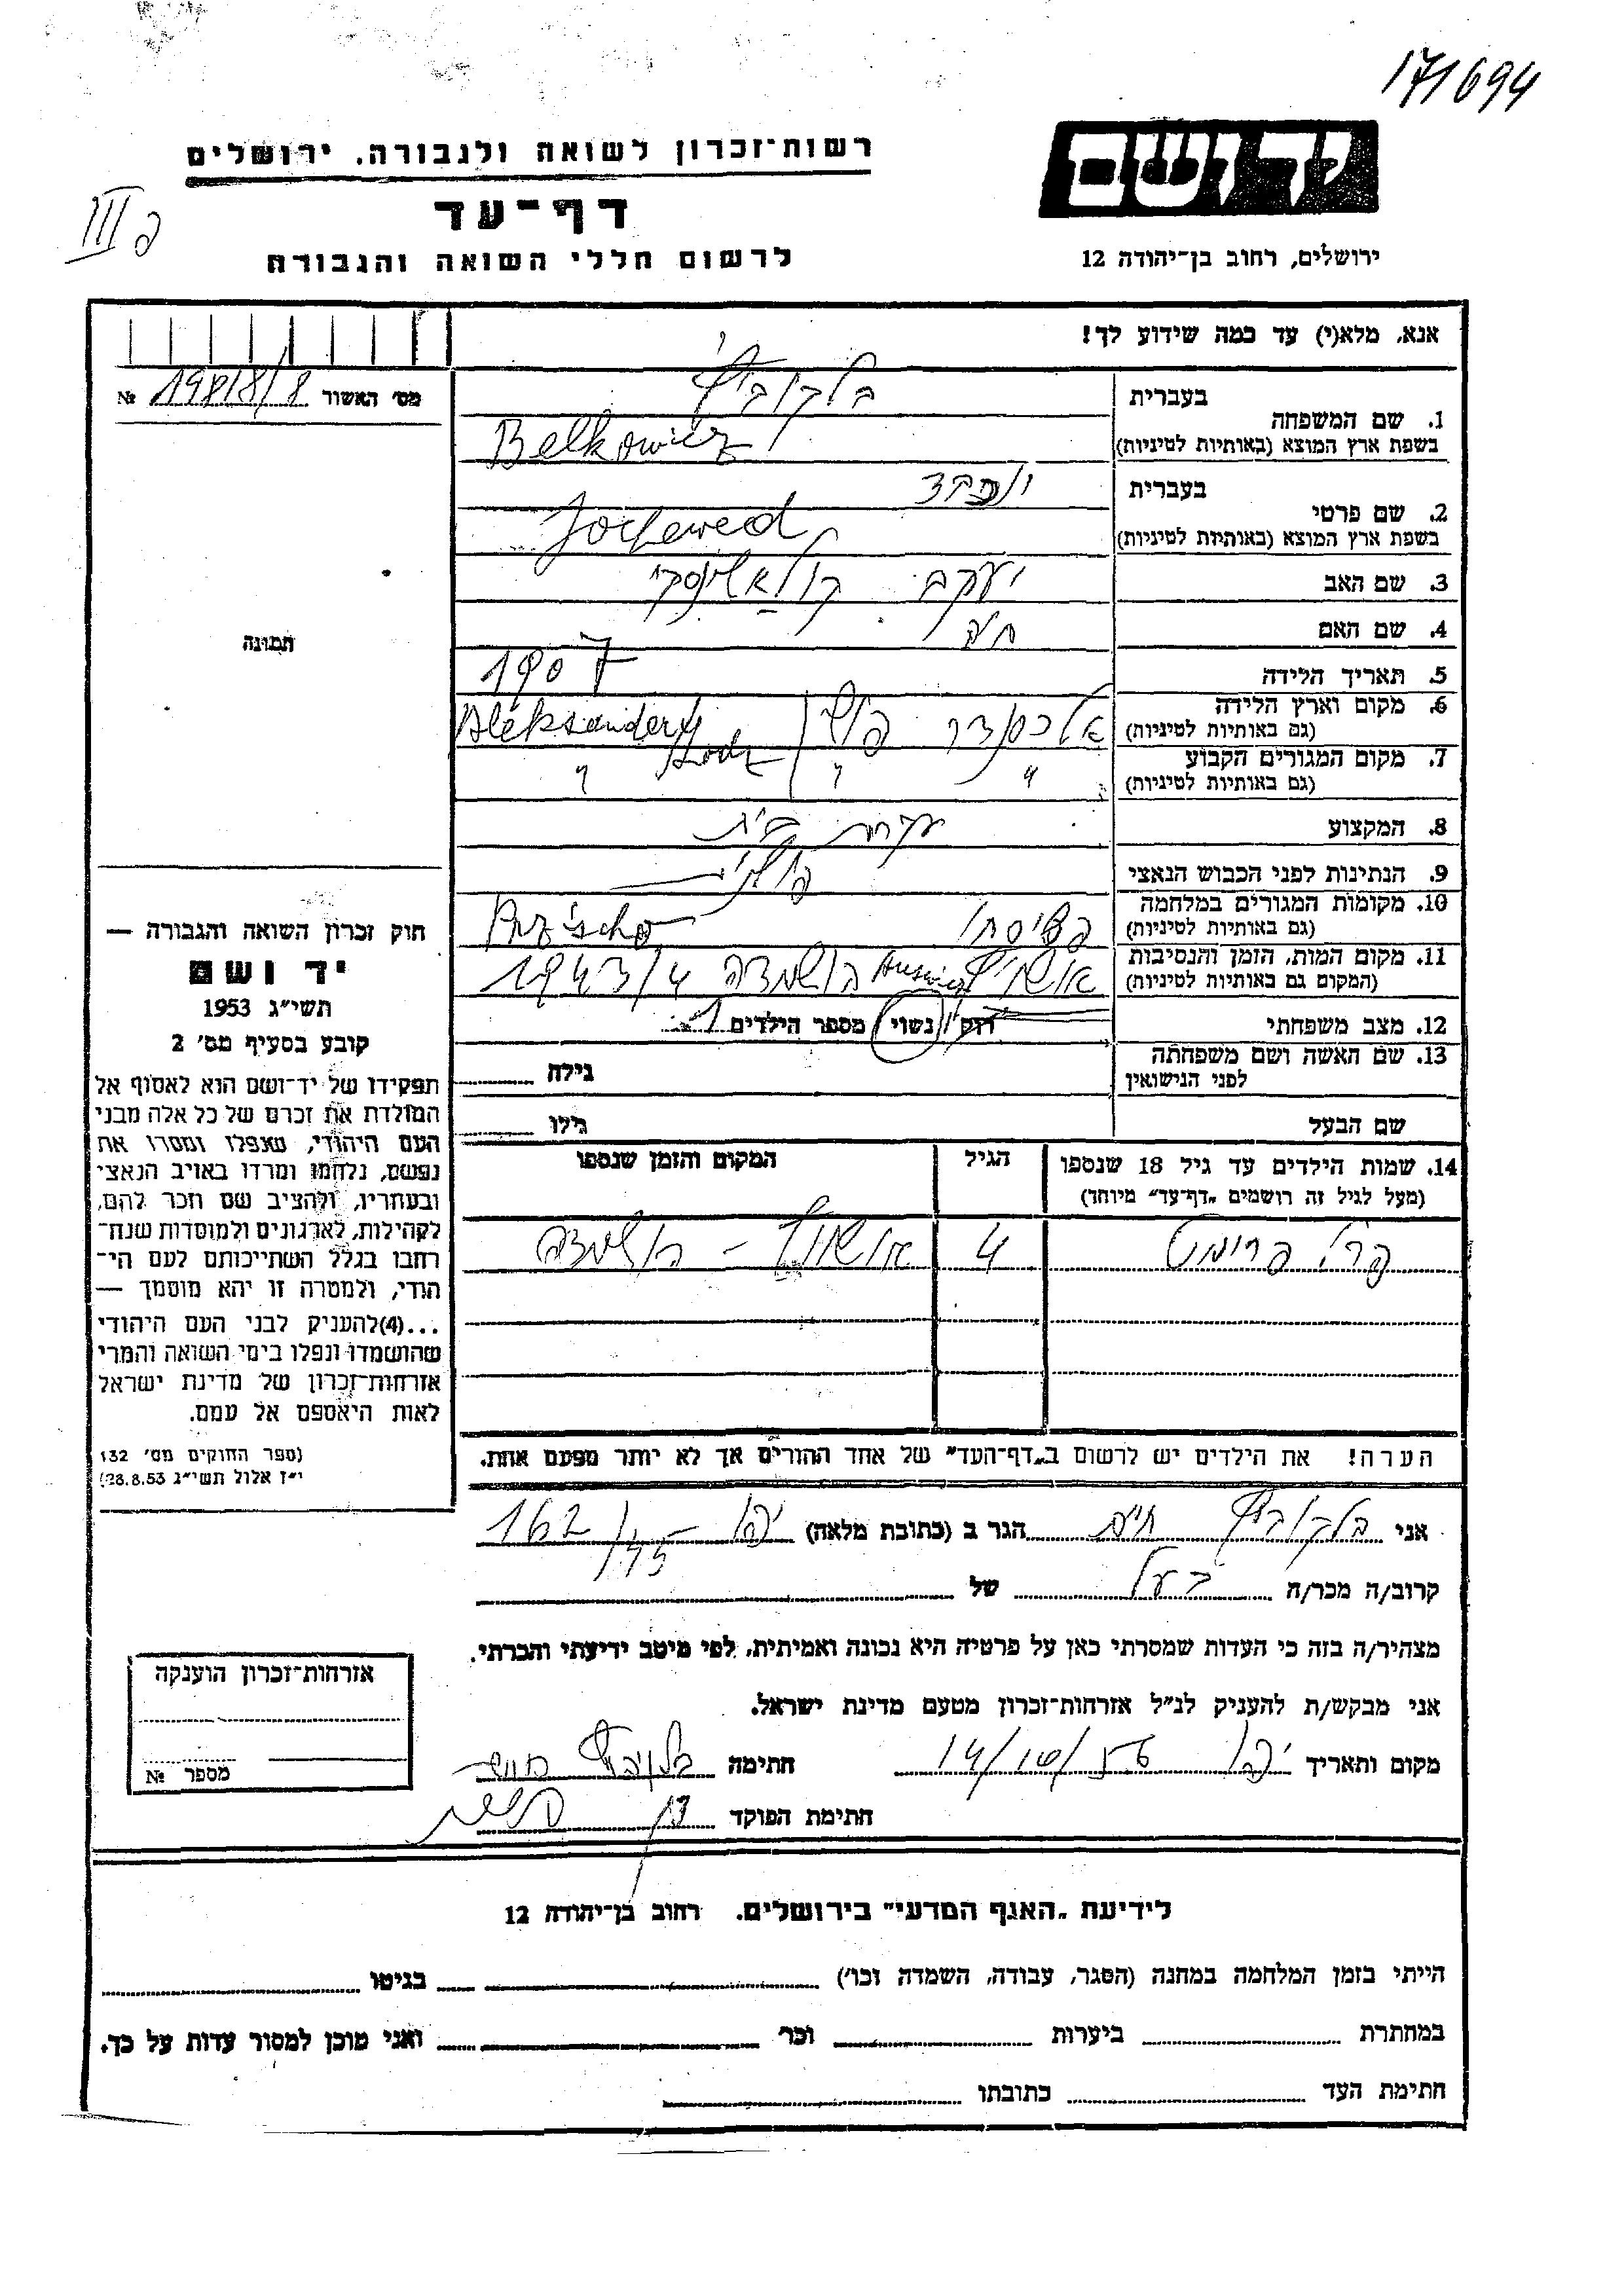 171694
יד ושם
רשות־זכרון לשואה ולגבורה. ירושלים
דף־עד
III פ
ירושלים, רחוב בן־יהודה 12
לרשום חללי השואה והגבורה
אנא, מלא(י) עד כמה שידוע לך!
מס' האשור № 198/8/8
1. שם המשפחה
בעברית בלקוביץ'
בשפת ארץ המוצא (באותיות לטיניות) Belkowicz
2. שם פרטי
בעברית יוכבד
בשפת ארץ המוצא (באותיות לטיניות) Jochewed
3. שם האב יעקב
4. שם האם חיה
תמונה
5. תאריך הלידה 1907
6. מקום וארץ הלידה אלכסנדר פולין Aleksandery
(גם באותיות לטיניות) Lodz
7. מקום המגורים הקבוע " " "
(גם באותיות לטיניות)
8. המקצוע עקרת בית
9. הנתינות לפני הכבוש הנאצי פולני
10. מקומות המגורים במלחמה
(גם באותיות לטיניות)
11. מקום המות, הזמן והנסיבות אושויץ בהשמדה 1943/4
(המקום גם באותיות לטיניות)
12. מצב משפחתי רוק נשוי מספר הילדים 1
13. שם האשה ושם משפחתה גילה
לפני הנישואין
שם הבעל גילו
14. שמות הילדים עד גיל 18 שנספו הגיל המקום והזמן שנספו
(מעל לגיל זה רושמים "דף־עד" מיוחד)
4 אושויץ – בהשמדה
הערה! את הילדים יש לרשום ב"דף־העד" של אחד ההורים אך לא יותר מפעם אחת.
חוק זכרון השואה והגבורה —
יד ושם
תשי"ג 1953
קובע בסעיף מס' 2
תפקידו של יד־ושם הוא לאסוף אל
המולדת את זכרם של כל אלה מבני
העם היהודי, שנפלו ומסרו את
נפשם, נלחמו ומרדו באויב הנאצי
ובעוזריו, ולהציב שם וזכר להם,
לקהילות, לארגונים ולמוסדות שנח־
רבו בגלל השתייכותם לעם הי־
הודי, ולמטרה זו יהא מוסמך —
...(4)להעניק לבני העם היהודי
שהושמדו ונפלו בימי השואה והמרי
אזרחות־זכרון של מדינת ישראל
לאות היאספם אל עמם.
(ספר החוקים מס' 132
י"ז אלול תשי"ג 28.8.53)
אני בלקוביץ חיים הגר ב (כתובת מלאה) יפו – 162
קרוב/ה מכר/ה בעל של
מצהיר/ה בזה כי העדות שמסרתי כאן על פרטיה היא נכונה ואמיתית, לפי מיטב ידיעתי והכרתי.
אני מבקש/ת להעניק לנ"ל אזרחות־זכרון מטעם מדינת ישראל.
מקום ותאריך יפו 14/10/ חתימה בלקוביץ
חתימת הפוקד
אזרחות־זכרון הוענקה
מספר №
לידיעת "האגף המדעי" בירושלים. רחוב בן־יהודה 12
הייתי בזמן המלחמה במחנה (הסגר, עבודה, השמדה וכו') בגיטו
במחתרת ביערות וכו' ואני מוכן למסור עדות על כך.
חתימת העד כתובתו